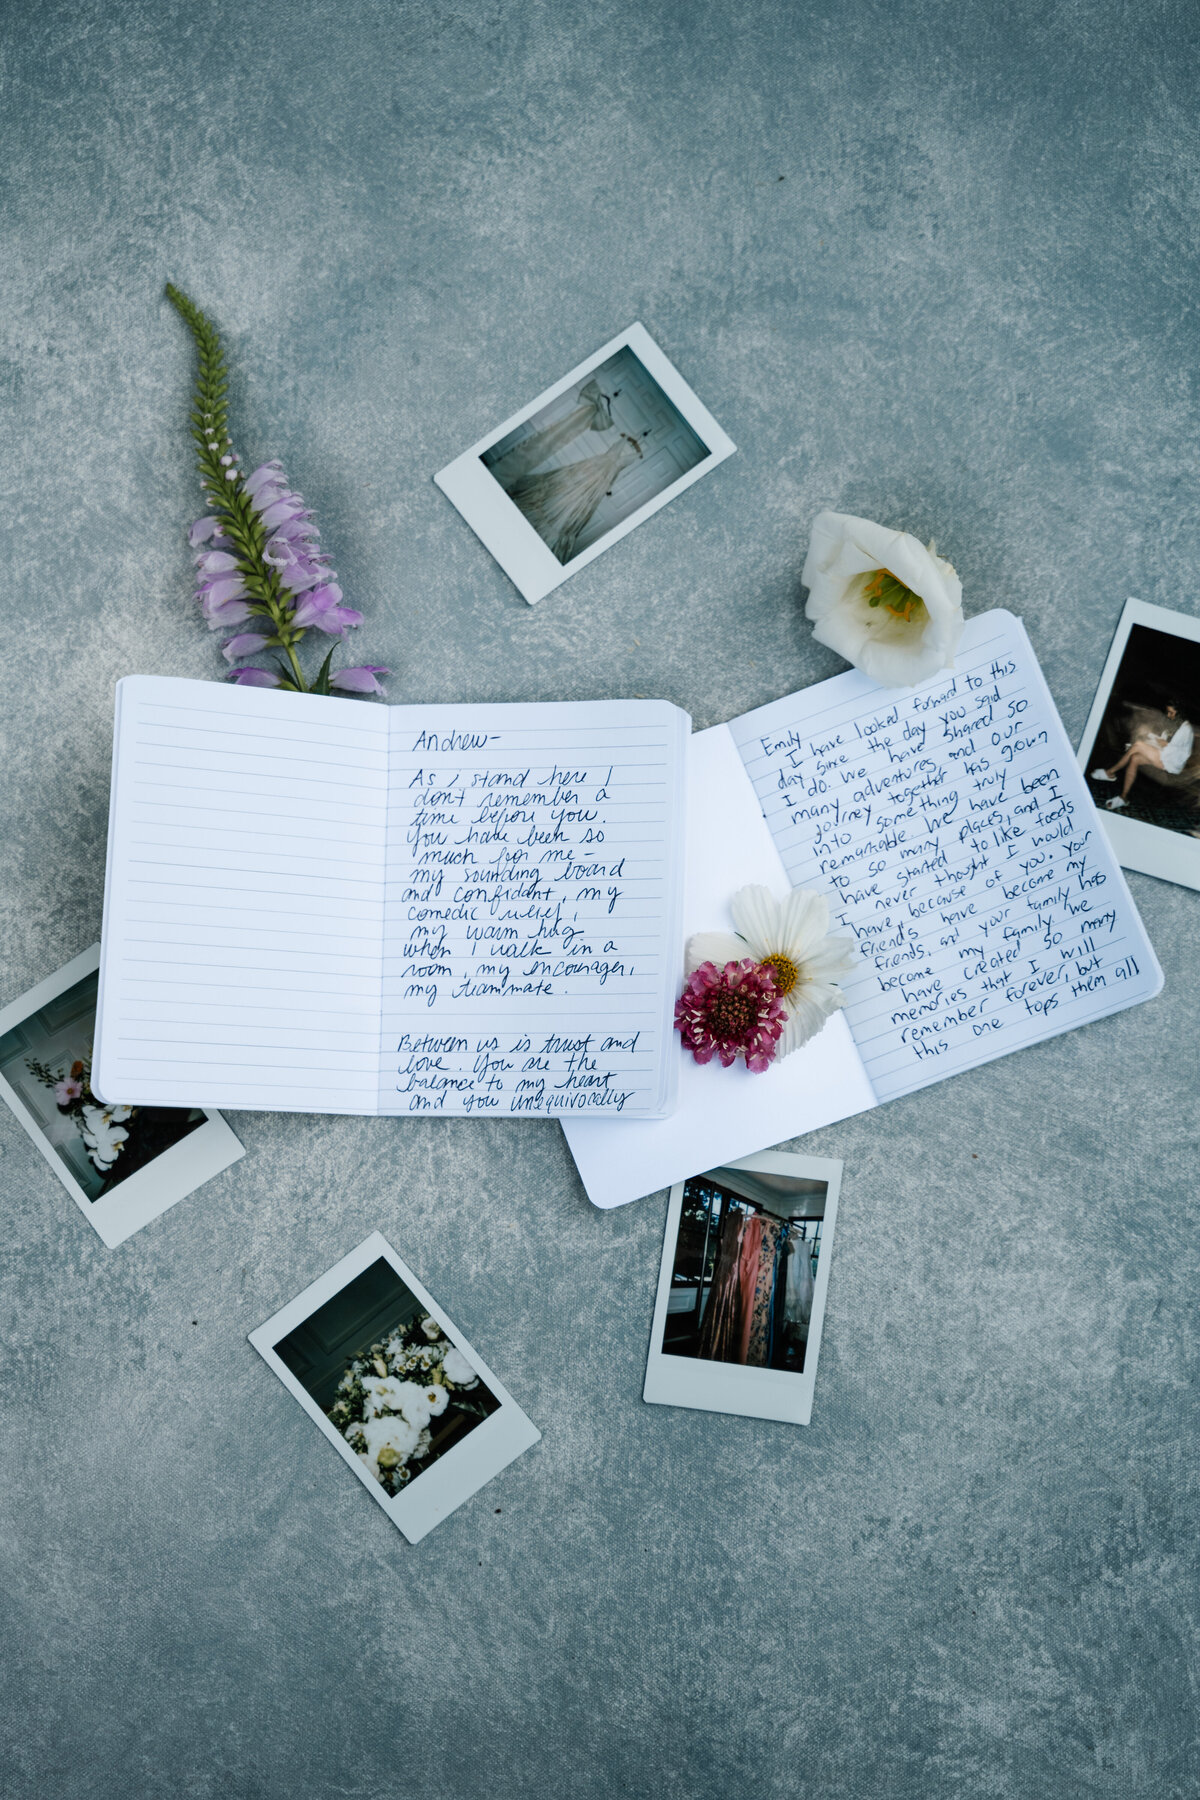 Andrew-
As I stand here I
don't remember a
time before you.
You have been so
much for me-
my sounding board
and confidant, my
comedic relief,
my warm hug
when I walk in a
room, my encourager,
my teammate.
Between us is trust and
love. You are the
balance to my heart
and you unequivocally
Emily
I have looked forward to this
day since the day you said
I do. We have shared so
many adventures, and our
journey together has grown
into something truly
remarkable. We have been
to so many places, and I
have started to like foods
I never thought I would
have, because of you. Your
friends have become my
friends, and your family has
become my family. We
have created so many
memories that I will
remember forever, but
this one tops them all